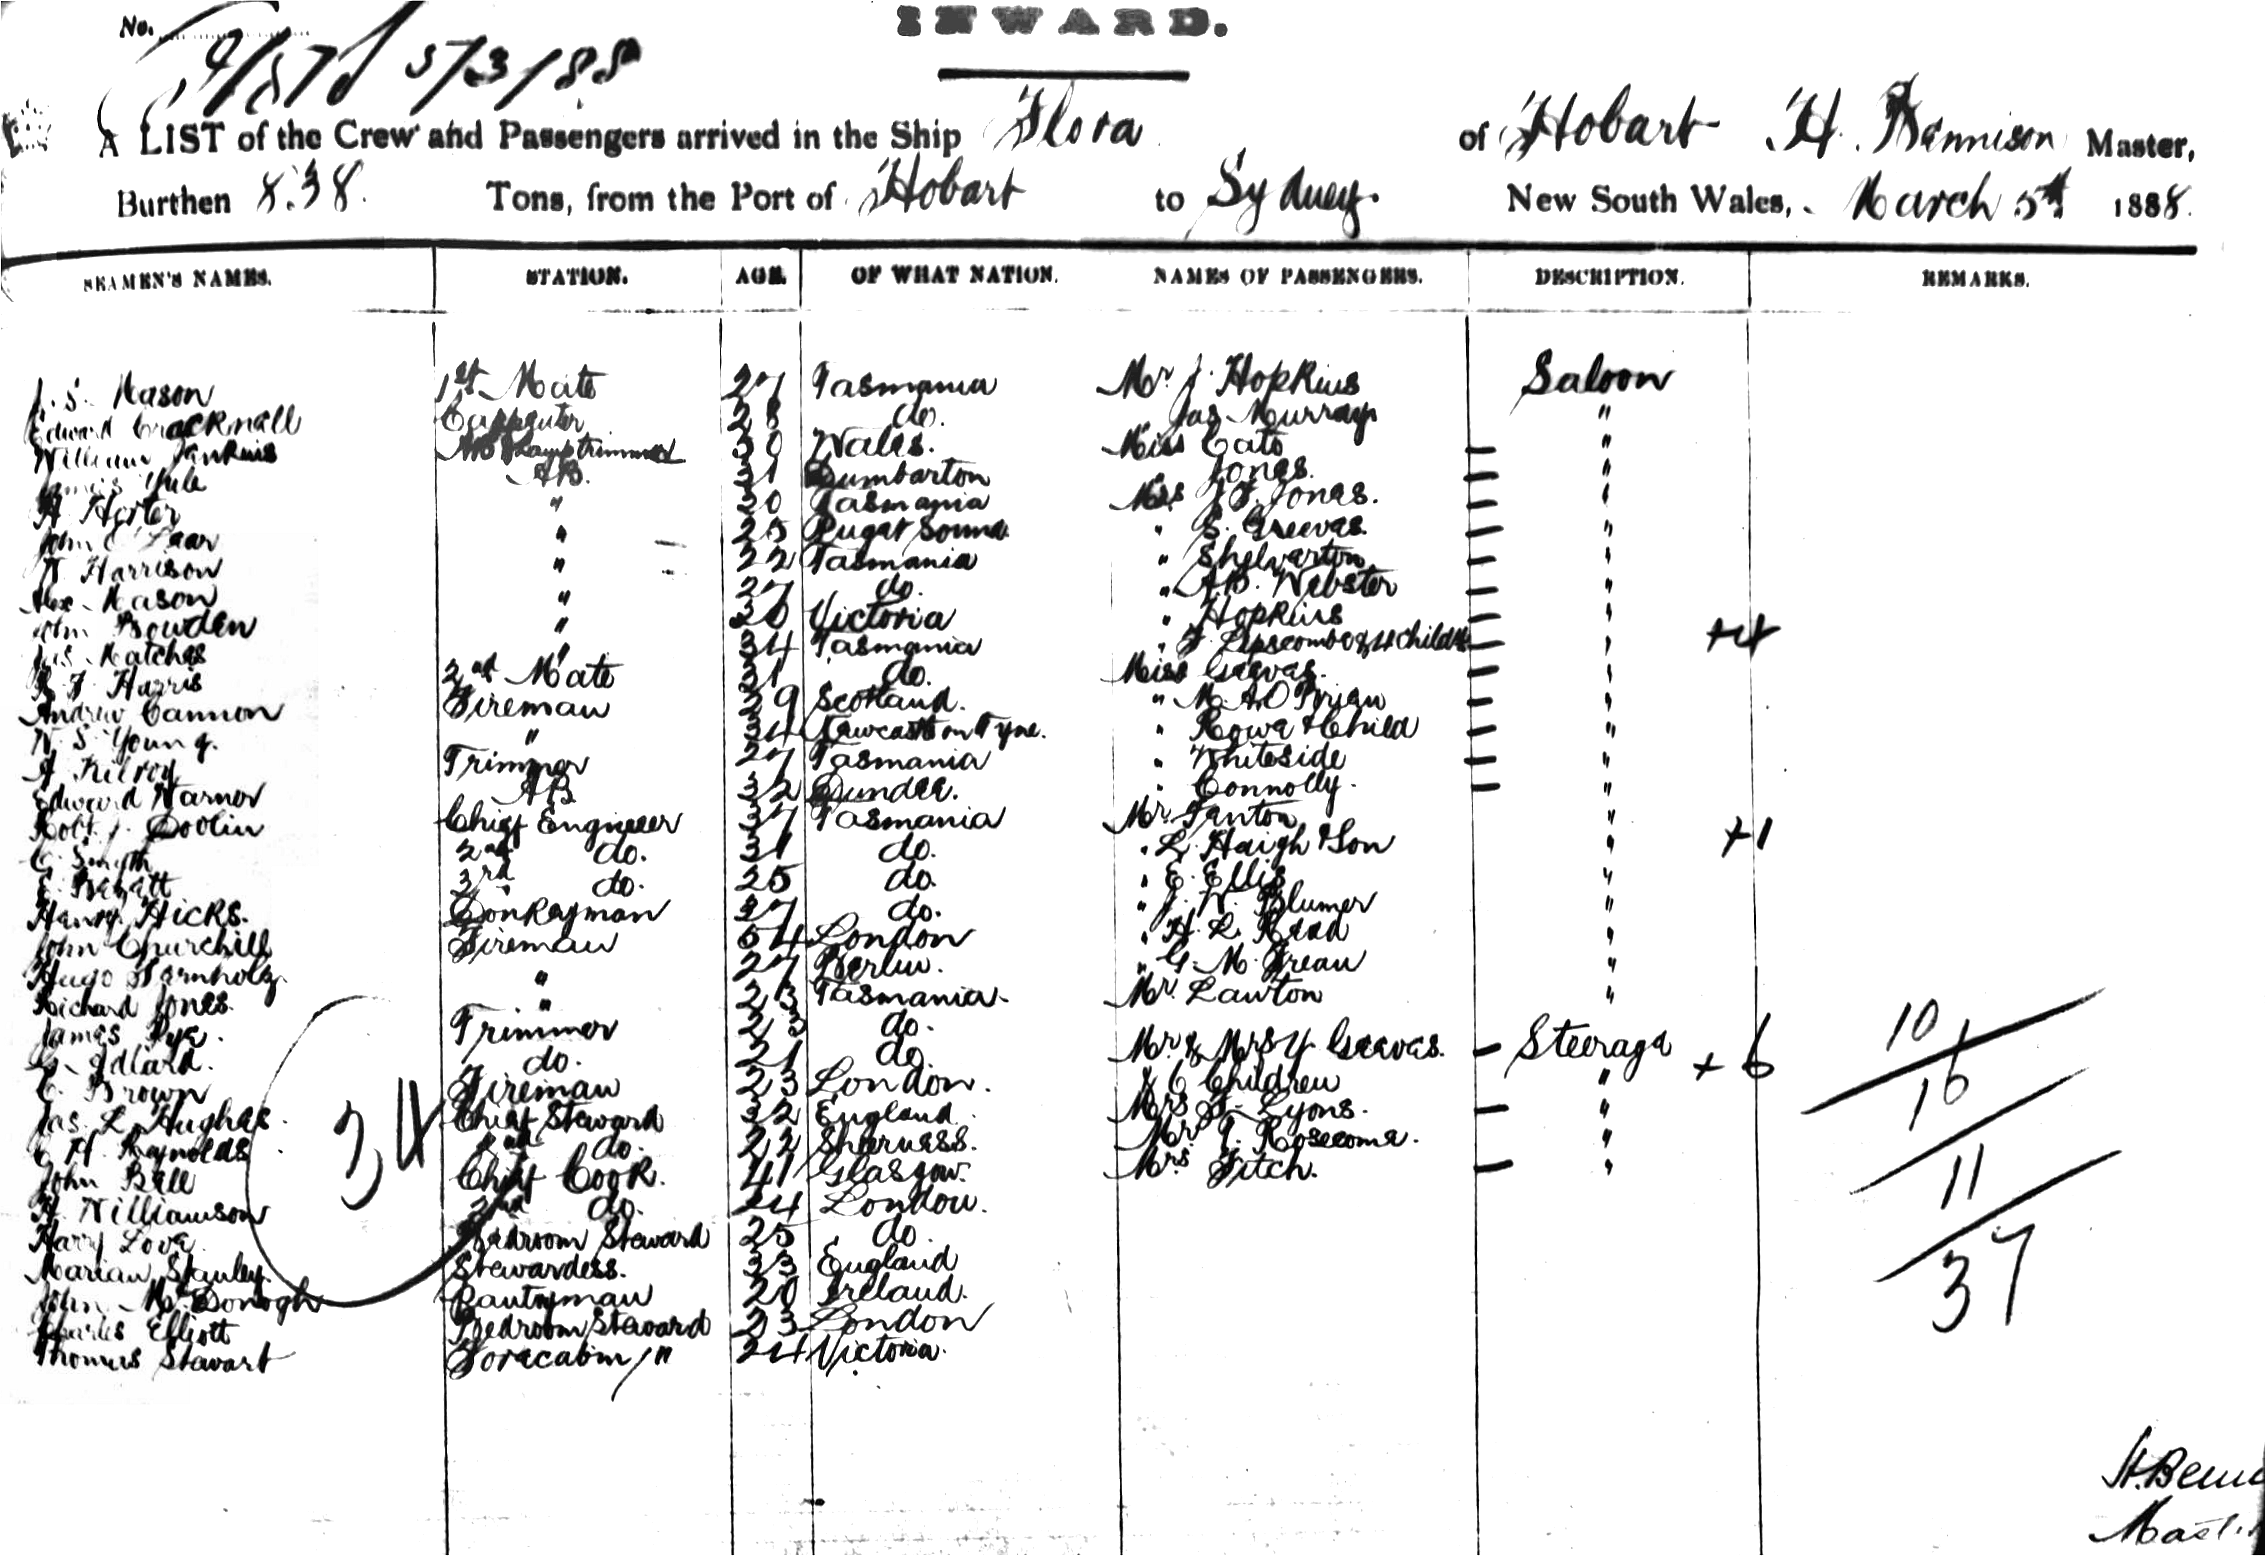 No. 9/87 5/3/88
INWARD.
A LIST of the Crew and Passengers arrived in the Ship Flora of Hobart H. Bennison Master,
Burthen 838. Tons, from the Port of Hobart to Sydney. New South Wales, March 5th 1888.
SEAMEN'S NAMES. STATION. AGE. OF WHAT NATION. NAMES OF PASSENGERS. DESCRIPTION. REMARKS.
J. S. Mason 1st Mate 27 Tasmania Mr J. Hopkins Saloon
Edward Cracknall Carpenter 28 do. Jas Murray "
William Jenkins AB & Lamptrimmer 30 Wales. Miss Cato — "
Yule AB. 31 Dumbarton " Jones. — "
H Hester " 20 Tasmania Mrs J F. Jones. — "
John " 25 Puget Sound " S. Greeves. — "
W Harrison " 22 Tasmania " Shelverton — "
Alex Mason " 27 do. " A.B. Webster — "
John Bowden " 20 Victoria " Hopkins — "
Jas Matches " 34 Tasmania " F. Lipscombe & 4 Childn — " +4
R F Harris 2nd Mate 31 do. Miss Geeves. — "
Andrew Cannon Fireman 29 Scotland. " M. A. O'Brien — "
W S Young. " 34 Newcastle on Tyne. " Rowe & Child — "
A Kilroy Trimmer 27 Tasmania " Whiteside — "
Edward Warner AB 32 Dundee. " Connolly. — "
Robt. J. Doolin Chief Engineer 37 Tasmania Mr Fenton "
C. Smyth 2nd do. 31 do. " L. Haigh & Son " +1
E. 3rd do. 25 do. " E. Ellis "
Henry Hicks. Donkeyman 27 do. " J. W. Blumer "
John Churchill Fireman 54 London " H. L. Read "
Hugo Barnholz " 27 Berlin. " G. M. Frean "
Richard Jones. " 23 Tasmania. Mr. Lawton "
James Pye. Trimmer 23 do. 10
G. Adlard. do. 21 do. Mr & Mrs Y Geeves. — Steerage + 6
C. Brown Fireman 23 London. & 6 Children " 16
Jas. L. Hughes. 34 Chief Steward 32 England. Mrs F. Lyons. — "
C H. Reynolds 2nd do. 22 Sheerness. Mr. T. Rosecome. "
John Ball Chief Cook. 41 Glasgow. Mrs. Fitch. — " 11
H. Williamson 2nd do. 24 London.
Harry Love Bedroom Steward 25 do.
Marian Stanley. Stewardess. 33 England 37
John McDonogh Pantryman 20 Ireland.
Charles Elliott Bedroom Steward 23 London
Thomas Stewart Forecabin " 24 Victoria.
H. Benn
Mast